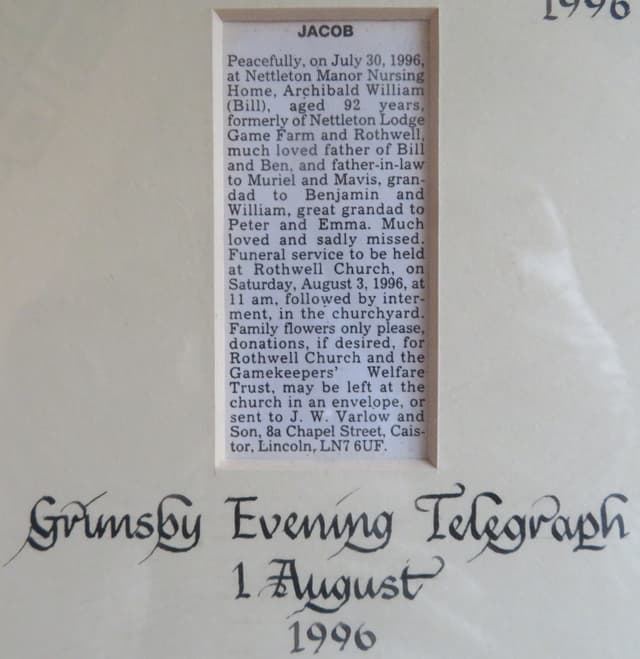 1996
JACOB
Peacefully, on July 30, 1996,
at Nettleton Manor Nursing
Home, Archibald William
(Bill), aged 92 years,
formerly of Nettleton Lodge
Game Farm and Rothwell,
much loved father of Bill
and Ben, and father-in-law
to Muriel and Mavis, gran-
dad to Benjamin and
William, great grandad to
Peter and Emma. Much
loved and sadly missed.
Funeral service to be held
at Rothwell Church, on
Saturday, August 3, 1996, at
11 am, followed by inter-
ment, in the churchyard.
Family flowers only please,
donations, if desired, for
Rothwell Church and the
Gamekeepers' Welfare
Trust, may be left at the
church in an envelope, or
sent to J. W. Varlow and
Son, 8a Chapel Street, Cais-
tor, Lincoln, LN7 6UF.
Grimsby Evening Telegraph
1 August
1996